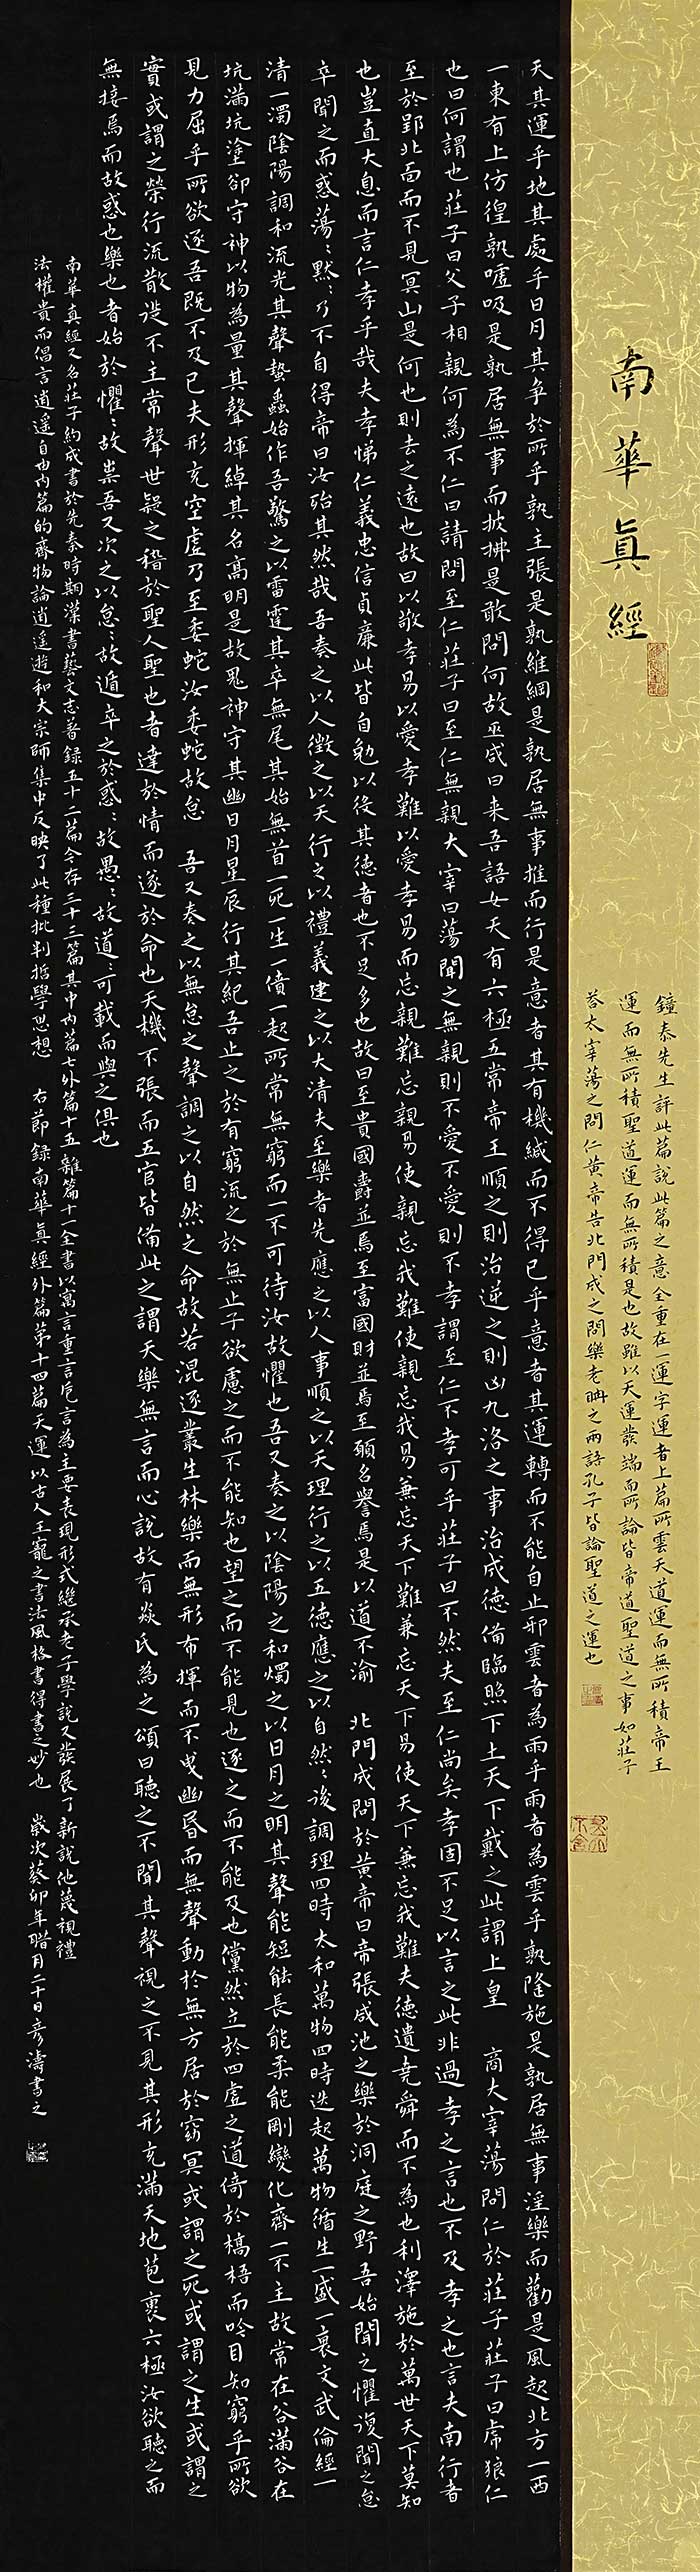 南華眞經
鐘泰先生評此篇說此篇之意全重在一運字運者上篇所雲天道運而無所積帝王
運而無所積聖道運而無所積是也故雖以天運發端而所論皆帝道聖道之事如莊子
答太宰蕩之問仁黃帝告北門成之問樂老聃之兩語孔子皆論聖道之運也
天其運乎地其處乎日月其爭於所乎孰主張是孰維綱是孰居無事推而行是意者其有機緘而不得已乎意者其運轉而不能自止邪雲者為雨乎雨者為雲乎孰隆施是孰居無事淫樂而勸是風起北方一西
一東有上仿徨孰噓吸是孰居無事而披拂是敢問何故巫咸曰来吾語女天有六極五常帝王順之則治逆之則凶九洛之事治成德備臨照下上天下戴之此謂上皇 商大宰蕩問仁於莊子莊子曰虎狼仁
也曰何謂也莊子曰父子相親何為不仁曰請問至仁莊子曰至仁無親大宰曰蕩聞之無親則不愛不愛則不孝謂至仁不孝可乎莊子曰不然夫至仁尚矣孝固不足以言之此非過孝之言也不及孝之也言夫南行者
至於郢北面而不見冥山是何也則去之遠也故曰以敬孝易以愛孝難以愛孝易而忘親難忘親易使親忘我難使親忘我易無忘天下難兼忘天下易使天下無忘我難夫德遺堯舜而不為也利澤施於萬世天下莫知
也豈直大息而言仁孝乎哉夫孝悌仁義忠信貞廉此皆自勉以役其德者也不足多也故曰至貴國爵並焉至富國財並焉至願名譽焉是以道不渝 北門成問於黃帝曰帝張咸池之樂於洞庭之野吾始聞之懼復聞之怠
卒聞之而惑蕩:默:乃不自得帝曰汝殆其然哉吾奏之以人徵之以天行之以禮義建之以大清夫至樂者先應之以人事順之以天理行之以五德應之以自然:後調理四時太和萬物四時迭起萬物循生一盛一衰文武倫經一
清一濁陰陽調和流光其聲蟄蟲始作吾驚之以雷霆其卒無尾其始無首一死一生一僨一起所常無窮而一不可待汝故懼也吾又奏之以陰陽之和燭之以日月之明其聲能短能長能柔能剛變化齊一不主故常在谷滿谷在
坑滿坑塗卻守神以物為量其聲揮綽其名高明是故鬼神守其幽日月星辰行其紀吾止之於有窮流之於無止子欲慮之而不能知也望之而不能見也逐之而不能及也儻然立於四虛之道倚於槁梧而吟目知窮乎所欲
見力屈乎所欲逐吾既不及已夫形充空虛乃至委蛇汝委蛇故怠 吾又奏之以無怠之聲調之以自然之命故若混逐叢生林樂而無形布揮而不曳幽昏而無聲動於無方居於窈冥或謂之死或謂之生或謂之
實或謂之榮行流散徙不主常聲世疑之稽於聖人聖也者達於情而遂於命也天機不張而五官皆備此之謂天樂無言而心說故有焱氏為之頌曰聽之不聞其聲視之不見其形充滿天地苞裹六極汝欲聽之而
無接焉而故惑也樂也者始於懼:故祟吾又次之以怠:故遁卒之於惑:故愚:故道:可載而與之俱也
南華真經又名莊子約成書於先秦時期漢書藝文志著錄五十二篇今存三十三篇其中內篇七外篇十五雜篇十一全書以寓言重言卮言為主要表現形式繼承老子學說又發展了新說他蔑視禮
法權貴而倡言逍遙自由內篇的齊物論逍遙遊和大宗師集中反映了此種批判哲學思想 右節錄南華真經外篇第十四篇天運以古人王寵之書法風格書得書之妙也 歲次癸卯年腊月二十日彥濤書之